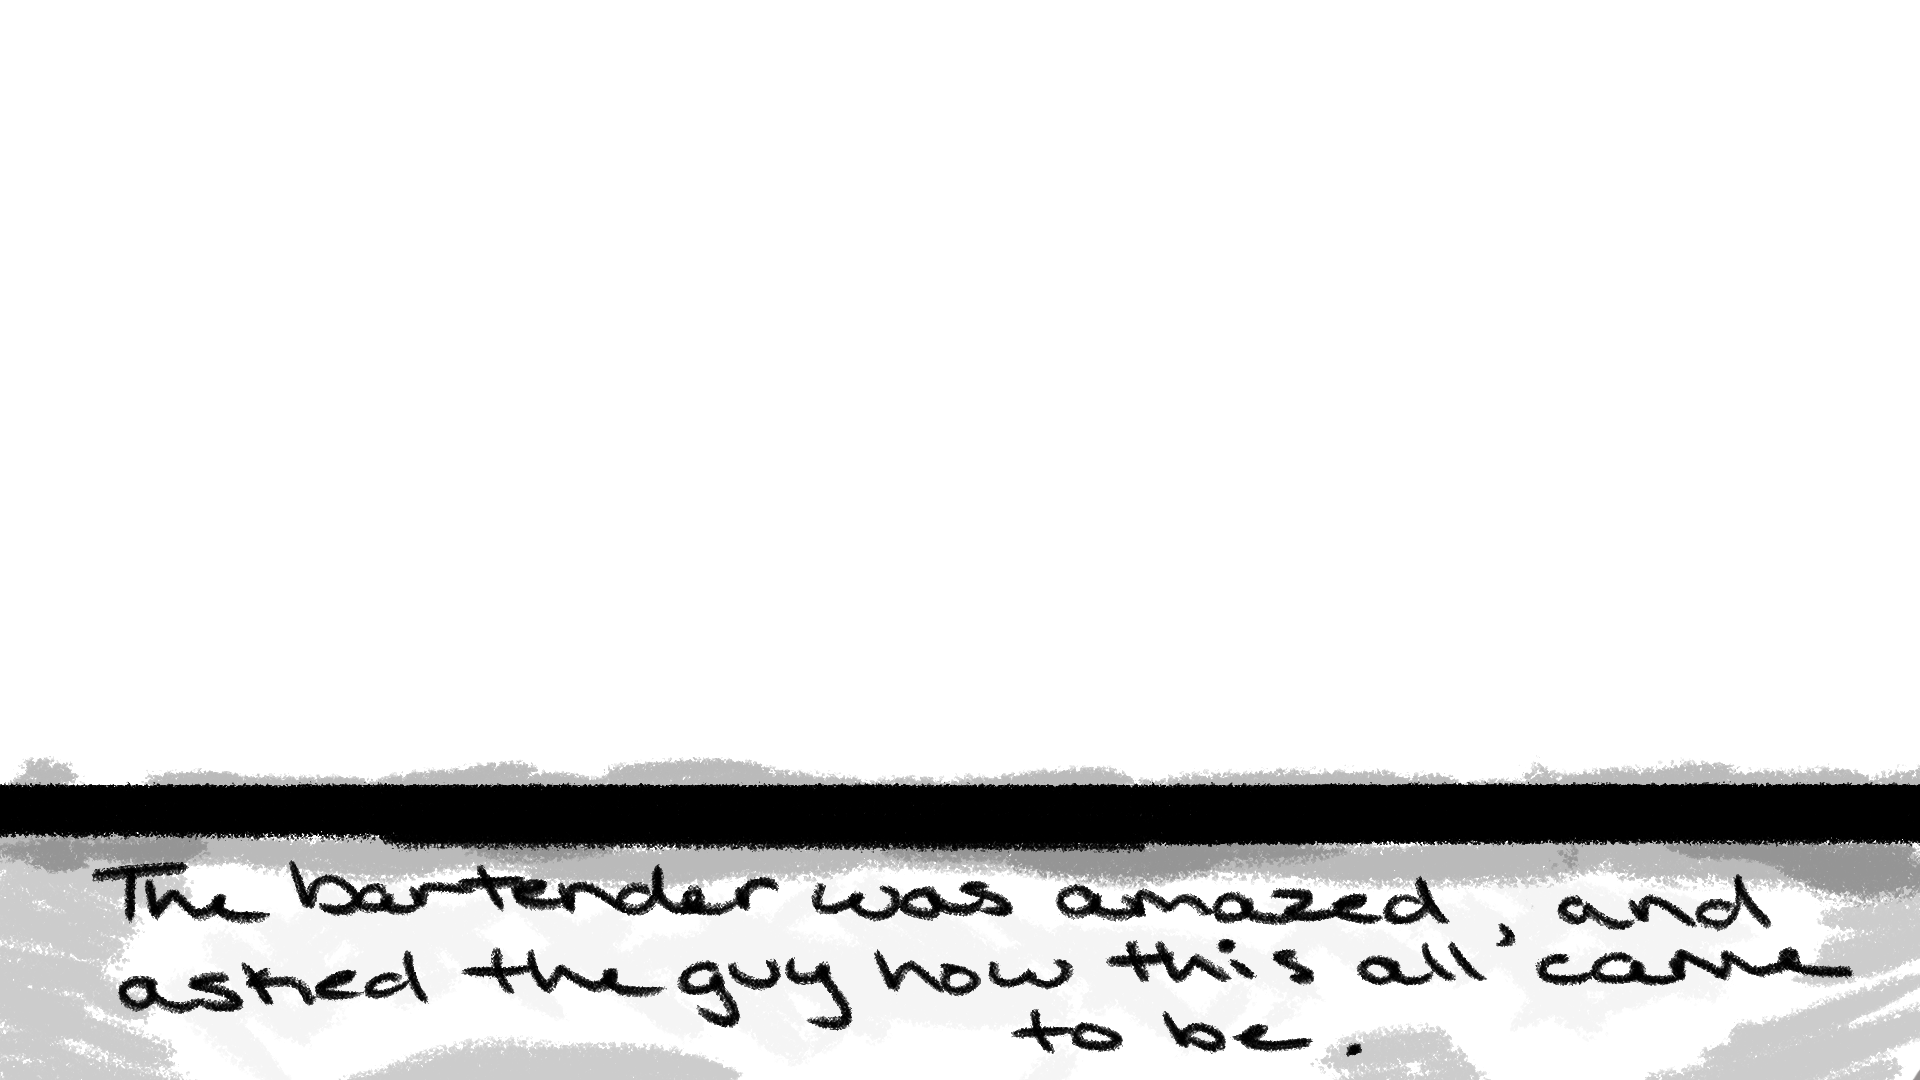 The bartender was amazed, and
asked the guy how this all came
to be.